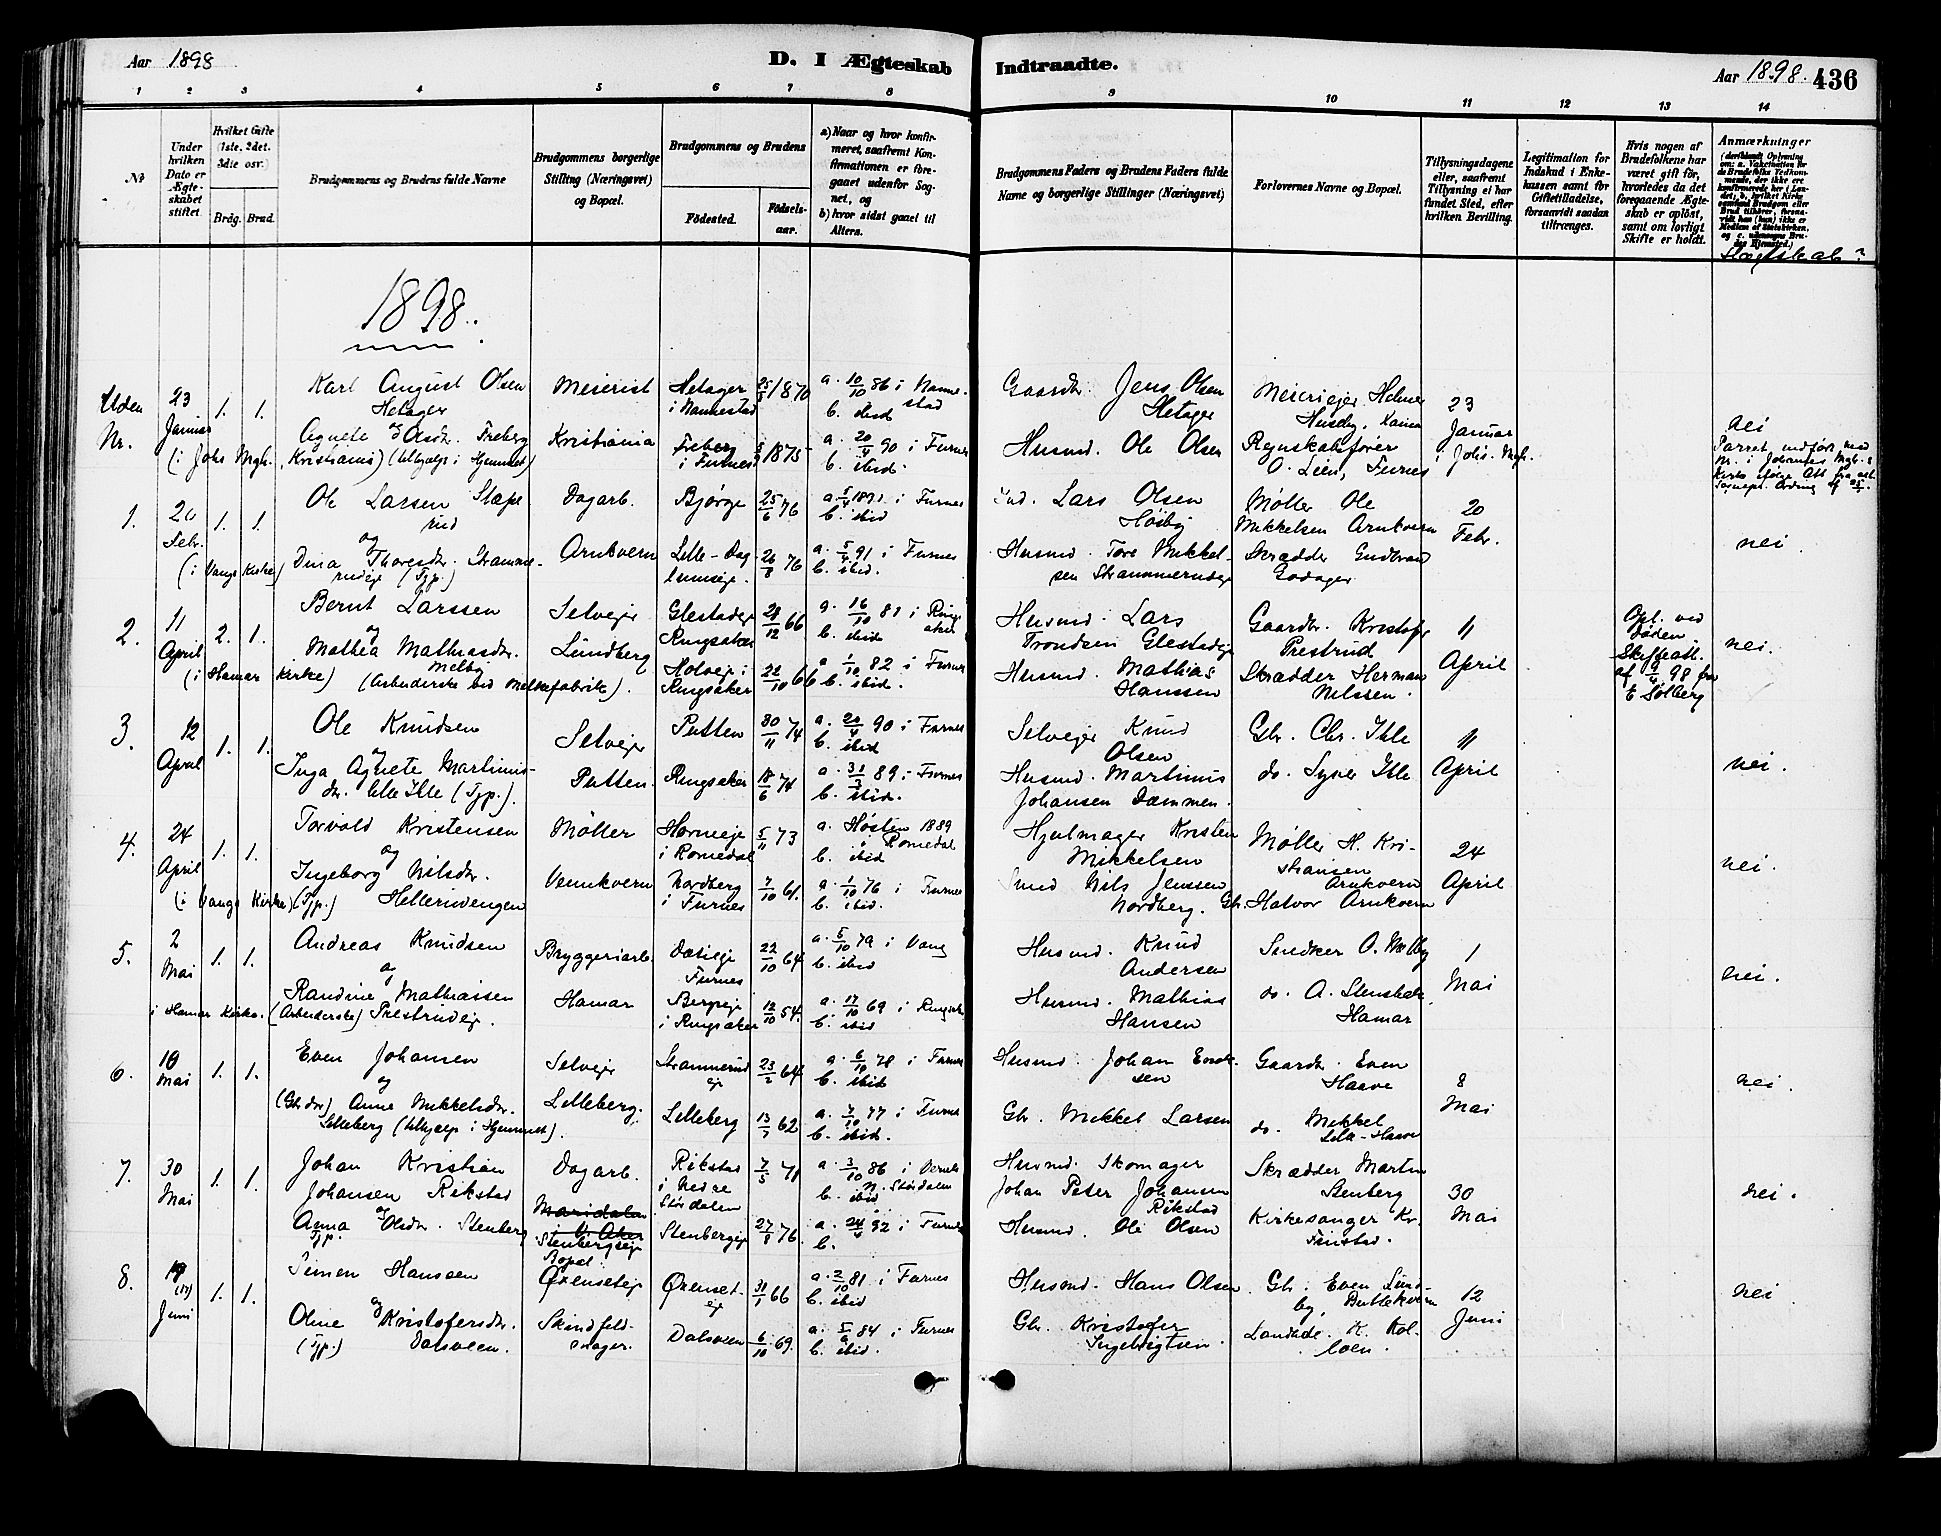 Aar 1898
D. I Ægteskab Indtraadte.
Aar 1898. 436
1 2 3 4 5 6 7 8 9 10 11 12 13 14
No
Under hvilken Dato er Ægteskabet stiftet.
Hvilket Gifte (1ste. 2det. 3die osv.)
Brdg. Brud.
Brudgommens og Brudens fulde Navne
Brudgommens borgerlige Stilling (Næringsvei) og Bopæl.
Brudgommens og Brudens
Fødested.
Fødselsaar.
a) Naar og hvor konfirmeret, saafremt Konfirmationen er foregaaet udenfor Sognet, og
b) hvor sidst gaaet til Alters.
Brudgommens Faders og Brudens Faders fulde Navne og borgerlige Stillinger (Næringsvei)
Forlovernes Navne og Bopæl.
Tillysningsdagene eller, saafremt Tillysning ei har fundet Sted, efter hvilken Bevilling.
Legitimation for Indskud i Enkekassen samt for Giftetilladelse, forsaavidt saadan tiltrænges.
Hvis nogen af Brudefolkene har været gift før, hvorledes da det foregaaende Ægteskab er opløst, samt om lovligt Skifte er holdt.
Anmærkninger
Slægtskab?
1898.
Uden Nr. 23 Januar 1. 1.
(i Johs Mgh., Kristiania)
Karl August Olsen Hetager
og
Agnete Olsdr. Freberg
(tilhjælp i Hjemmet)
Meierist
Kristiania
Hetager i Nannestad 25/8 1870
Freberg i Furnes 1875
a. 10/10 86 i Nannestad
b. ibid
a. 20/4 90 i Furnes
b. ibid.
Gaardbr. Jens Olsen Hetager
Husmd. Ole Olsen
Meieriejer Helmer Huseby,
Regnskabsfører O. Lien, Furnes
23 Januar i Johs. Mgh.
nei
1. 20 Febr. 1. 1.
(i Vangs Kirke)
Ole Larsen Staperud
og
Dina Thoresdr. Strammerudeje (Tjp.)
Dagarb.
Arnkvern
Bjørge 25/6 76
Lille-Daglumseje. 26/8 76
a. 5/4 1891 i Furnes
b. ibid
a. 5/4 91 i Furnes
b. ibid.
Ind. Lars Olsen Høiby
Husmd. Tore Mikkelsen Strammerudeje
Møller Ole Mikkelsen Arnkvern
Skrædder Gudbrand Godager
20 Febr.
nei.
2. 11 April 2. 1.
(i Hamar Kirke)
Bernt Larssen
og
Mathea Mathiasdr. Melby
(Arbeiderske ved Melkefabrik).
Selvejer
Lundberg
Glestadeje Ringsaker 28/12 66
Holveje i Ringsaker 22/10 66
a. 16/10 81 i Ringsaker
b. ibid
a 1/10 82 i Furnes
b. ibid.
Husmd. Lars Trondsen Glestadeje
Husmd. Mathias Hanssen
Gaardbr. Kristofer Prestrud
Skrædder Herman Nilssen.
11 April
Opl. ved Døden Skifteatt. af 9/4 98 fra E Sølberg
nei.
3. 12 April 1. 1.
Ole Knudsen
og
Inga Agnete Martinusdr. lille Ihle (Tjp.).
Selvejer
Putten.
Putten 30/11 74
Ringsaker 18/6 74
a. 20/4 90 i Furnes
b. ibid
a. 31/3 89 i Furnes
b. ibid.
Selvejer Knud Olsen
Husmd. Martinus Johansen Dammen.
Gbr. Chr. Ihle
do. Syver Ihle
11 April
nei.
4. 24 April 1. 1.
(i Vangs Kirke)
Torvald Kristensen
og
Ingeborg Nilsdr.
(Tjp.) Hellerivengen
Møller
Vennkvern
Horneeje i Romedal 5/11 73
Nordberg i Furnes 7/10 61.
a. Høsten 1889 i Romedal
b. ibid
a. 1/10 76 i Furnes
b. ibid.
Hjulmager Kristen Mikkelsen
Smed Nils Jenssen Nordberg.
Møller H. Kristiansen Arnkvern
Gbr. Halvor Arnkvern
24 April
nei.
5. 2 Mai 1. 1.
i Hamar Kirke.
Andreas Knudsen
og
Randine Mathiassen
(Arbeiderske) Prestrudeje.
Bryggeriarb.
Hamar
Furnes 22/10 64
Bergeje i Ringsaker 12/10 54.
a. 5/10 79 i Vang
b. ibid
a. 17/10 69 i Ringsaker
b. ibid
Husmd. Knud Andersen
Husmd. Mathias Hansen
Snedker O. Melby
do. A. Stensbak, Hamar
1 Mai
nei.
6. 10 Mai 1. 1.
Even Johansen
og
(Gbr.dr) Anne Mikkelsdr. Lilleberg (tilhjælp i Hjemmet).
Selvejer
Lilleberg.
Strammerudeje 23/2 64
Lilleberg 13/7 62
a. 6/10 78 i Furnes
b. ibid
a. 7/10 77 i Furnes
b. ibid.
Husmd. Johan Evensen
Gbr. Mikkel Larsen
Gaardbr. Even Haave
do. Mikkel Lille-Haave
8 Mai
nei.
7. 30 Mai 1. 1.
Johan Kristian Johansen Rikstad
og
Anna Olsdr. Stenberg
Tjp.
Dagarb.
Maridalen i V. Aker
Stenbergseje
Rikstad i Nedre Stördalen 7/5 71
Stenbergeje 27/8 76.
a. 3/10 86 i N. Stördalen
b. ibid
a. 24/4 92 i Furnes
b.
Husmd. Skomager Johan Peter Johansen Rikstad
Husmd. Ole Olsen
Skrædder Martin Stenberg
Kirkesanger Kr. Finstad.
30 Mai
nei.
8. Juni 1. 1.
Simen Hanssen
og
Oline Kristofersdr.
(Tjp.) Dalsveen.
Bopæl: Øxenseteje
Skindfeldmager.
Øxenseteje 31/1 66
Dalsveen 6/10 69.
a. 2/10 81 i Furnes
b. ibid
a. 5/9 84 i Furnes
b. ibid.
Husmd. Hans Olsen
Gbr. Kristofer Ingebrigtsen.
Gbr. Even Lundby, Buttekvern
Landhdl. K. Kolloen.
12 Juni
nei.